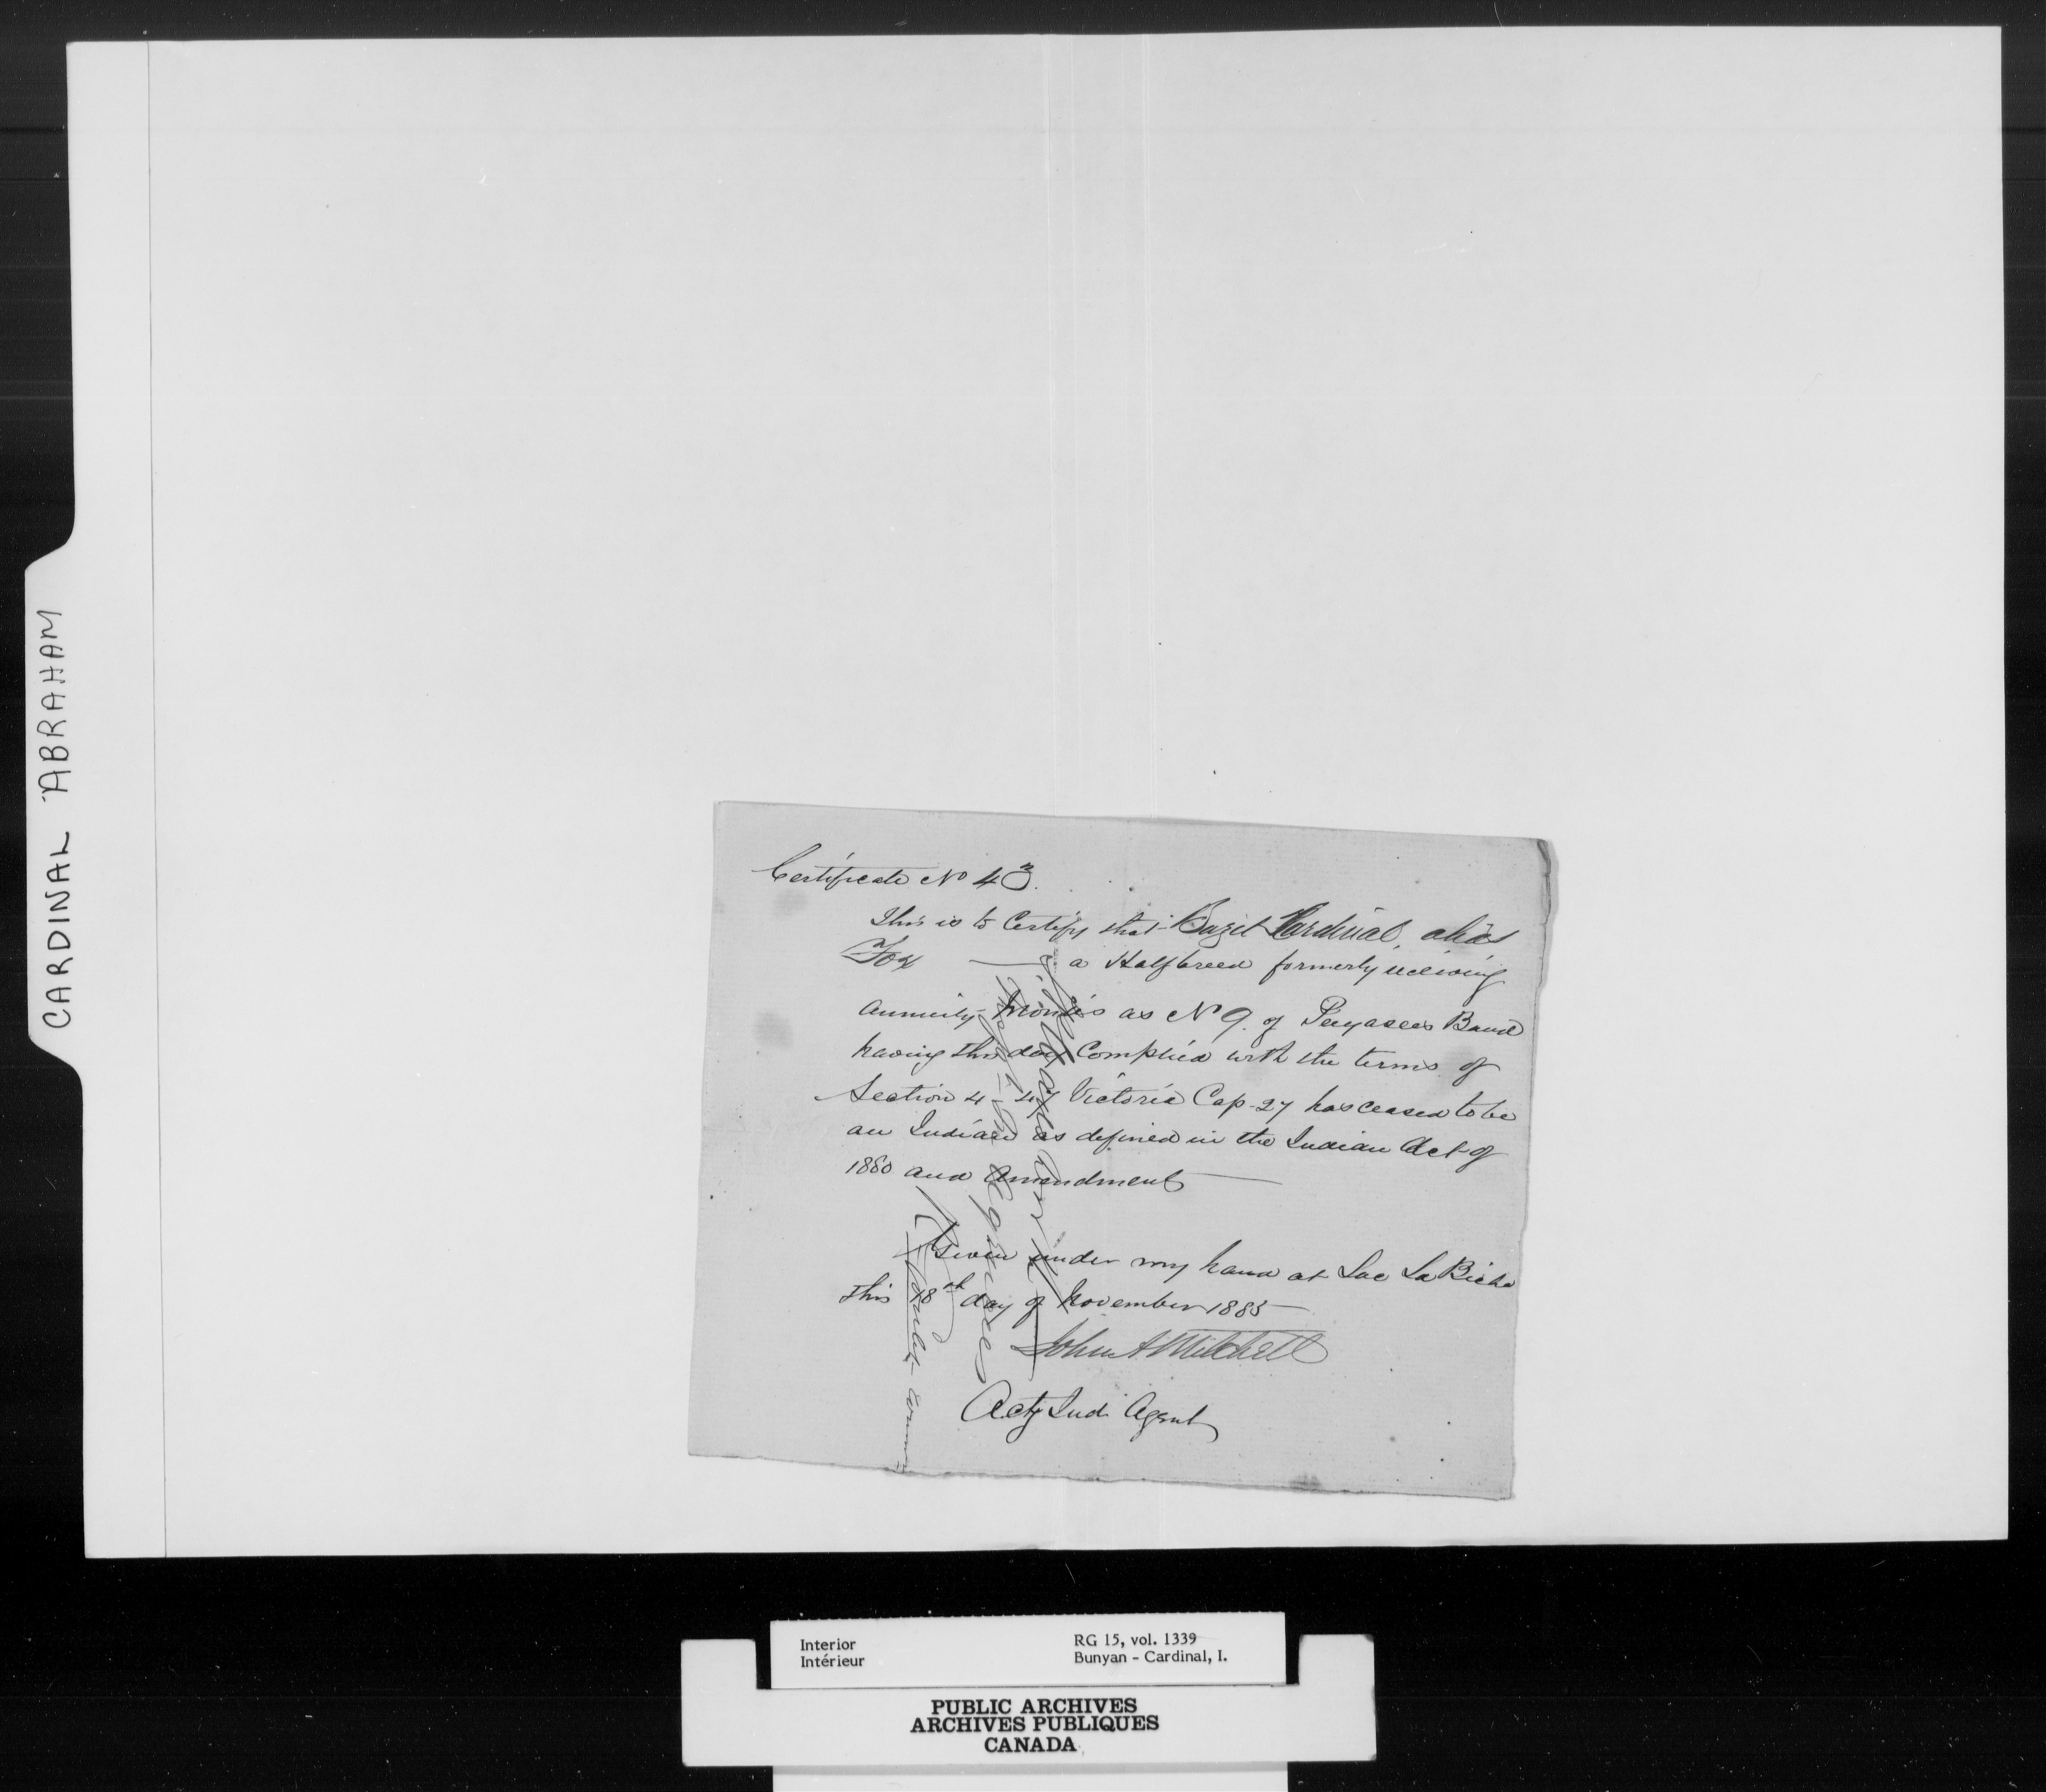 CARDINAL ABRAHAM
Certificate No 43.
This is to Certify that Bazil Cardinal, alias
Fox — a Halfbreed formerly receiving
annuity monies as No 9. of Peeyasees Band
having this day Complied with the terms of
Section 4 - 47 Victoria Cap-27 has ceased to be
an Indian as defined in the Indian Act of
1880 and Amendment —
Given under my hand at Lac La Biche
this 18th day of November 1885
John A Mitchell
Actg Ind. Agent
Interior
Intérieur
RG 15, vol. 1339
Bunyan - Cardinal, I.
PUBLIC ARCHIVES
ARCHIVES PUBLIQUES
CANADA